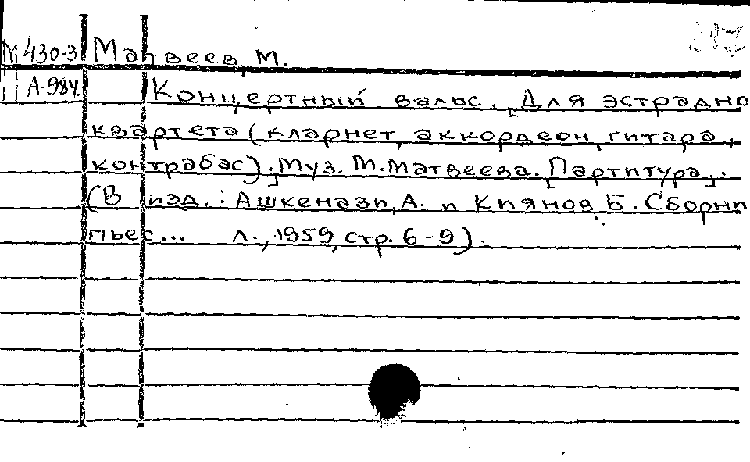 М 430-3 Матвеев, М.
А-984 Концертный вальс. [Для эстрадно
квартета (кларнет, аккордеон, гитара,
контрабас)]. Муз. М. Матвеева. [Партитура].
(В изд.: Ашкенази, А. и Киянов Б. Сборни
пьес... Л., 1959, стр. 6-9).